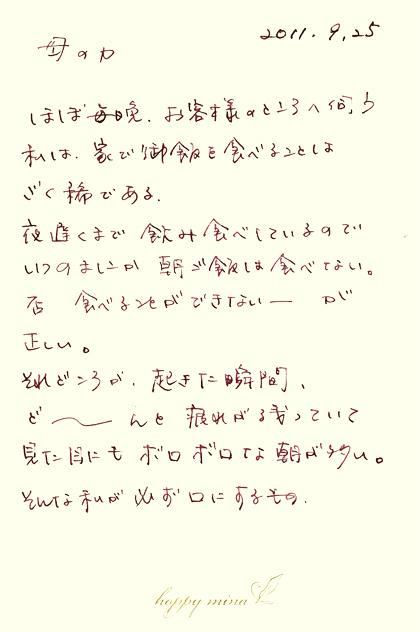 2011.9.25
母の力
ほぼ毎晩、お客様のところへ伺う
私は、家で御飯を食べることは
ごく稀である。
夜遅くまで 飲み食べしているので
いつのまにか 朝ご飯は食べない。
否 食べることができないー が
正しい。
それどころか、起きた瞬間、
ど〜んと 疲れが残っていて
見た目にも ボロボロな朝が多い。
そんな私が必ず口にするもの。
happy mina